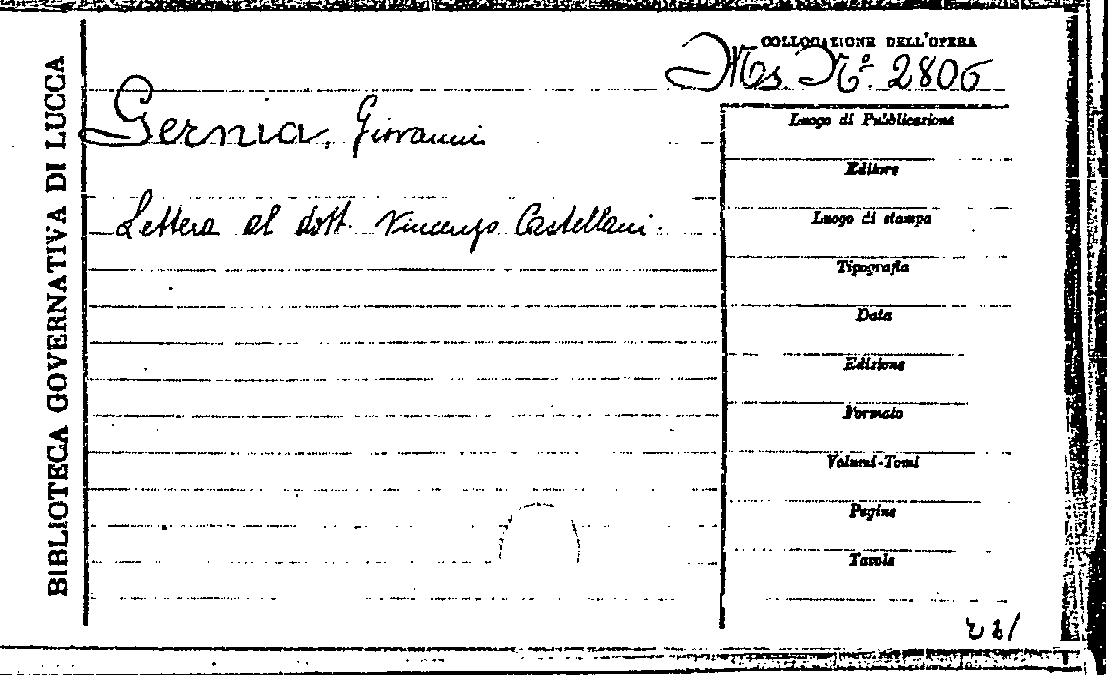 BIBLIOTECA GOVERNATIVA DI LUCCA
COLLOCAZIONE DELL'OPERA
Ms. N.º 2806
Gernia, Giovanni
Lettera al dott. Vincenzo Castellani.
Luogo di Pubblicazione
Editore
Luogo di stampa
Tipografia
Data
Edizione
Formato
Volumi-Tomi
Pagine
Tavole